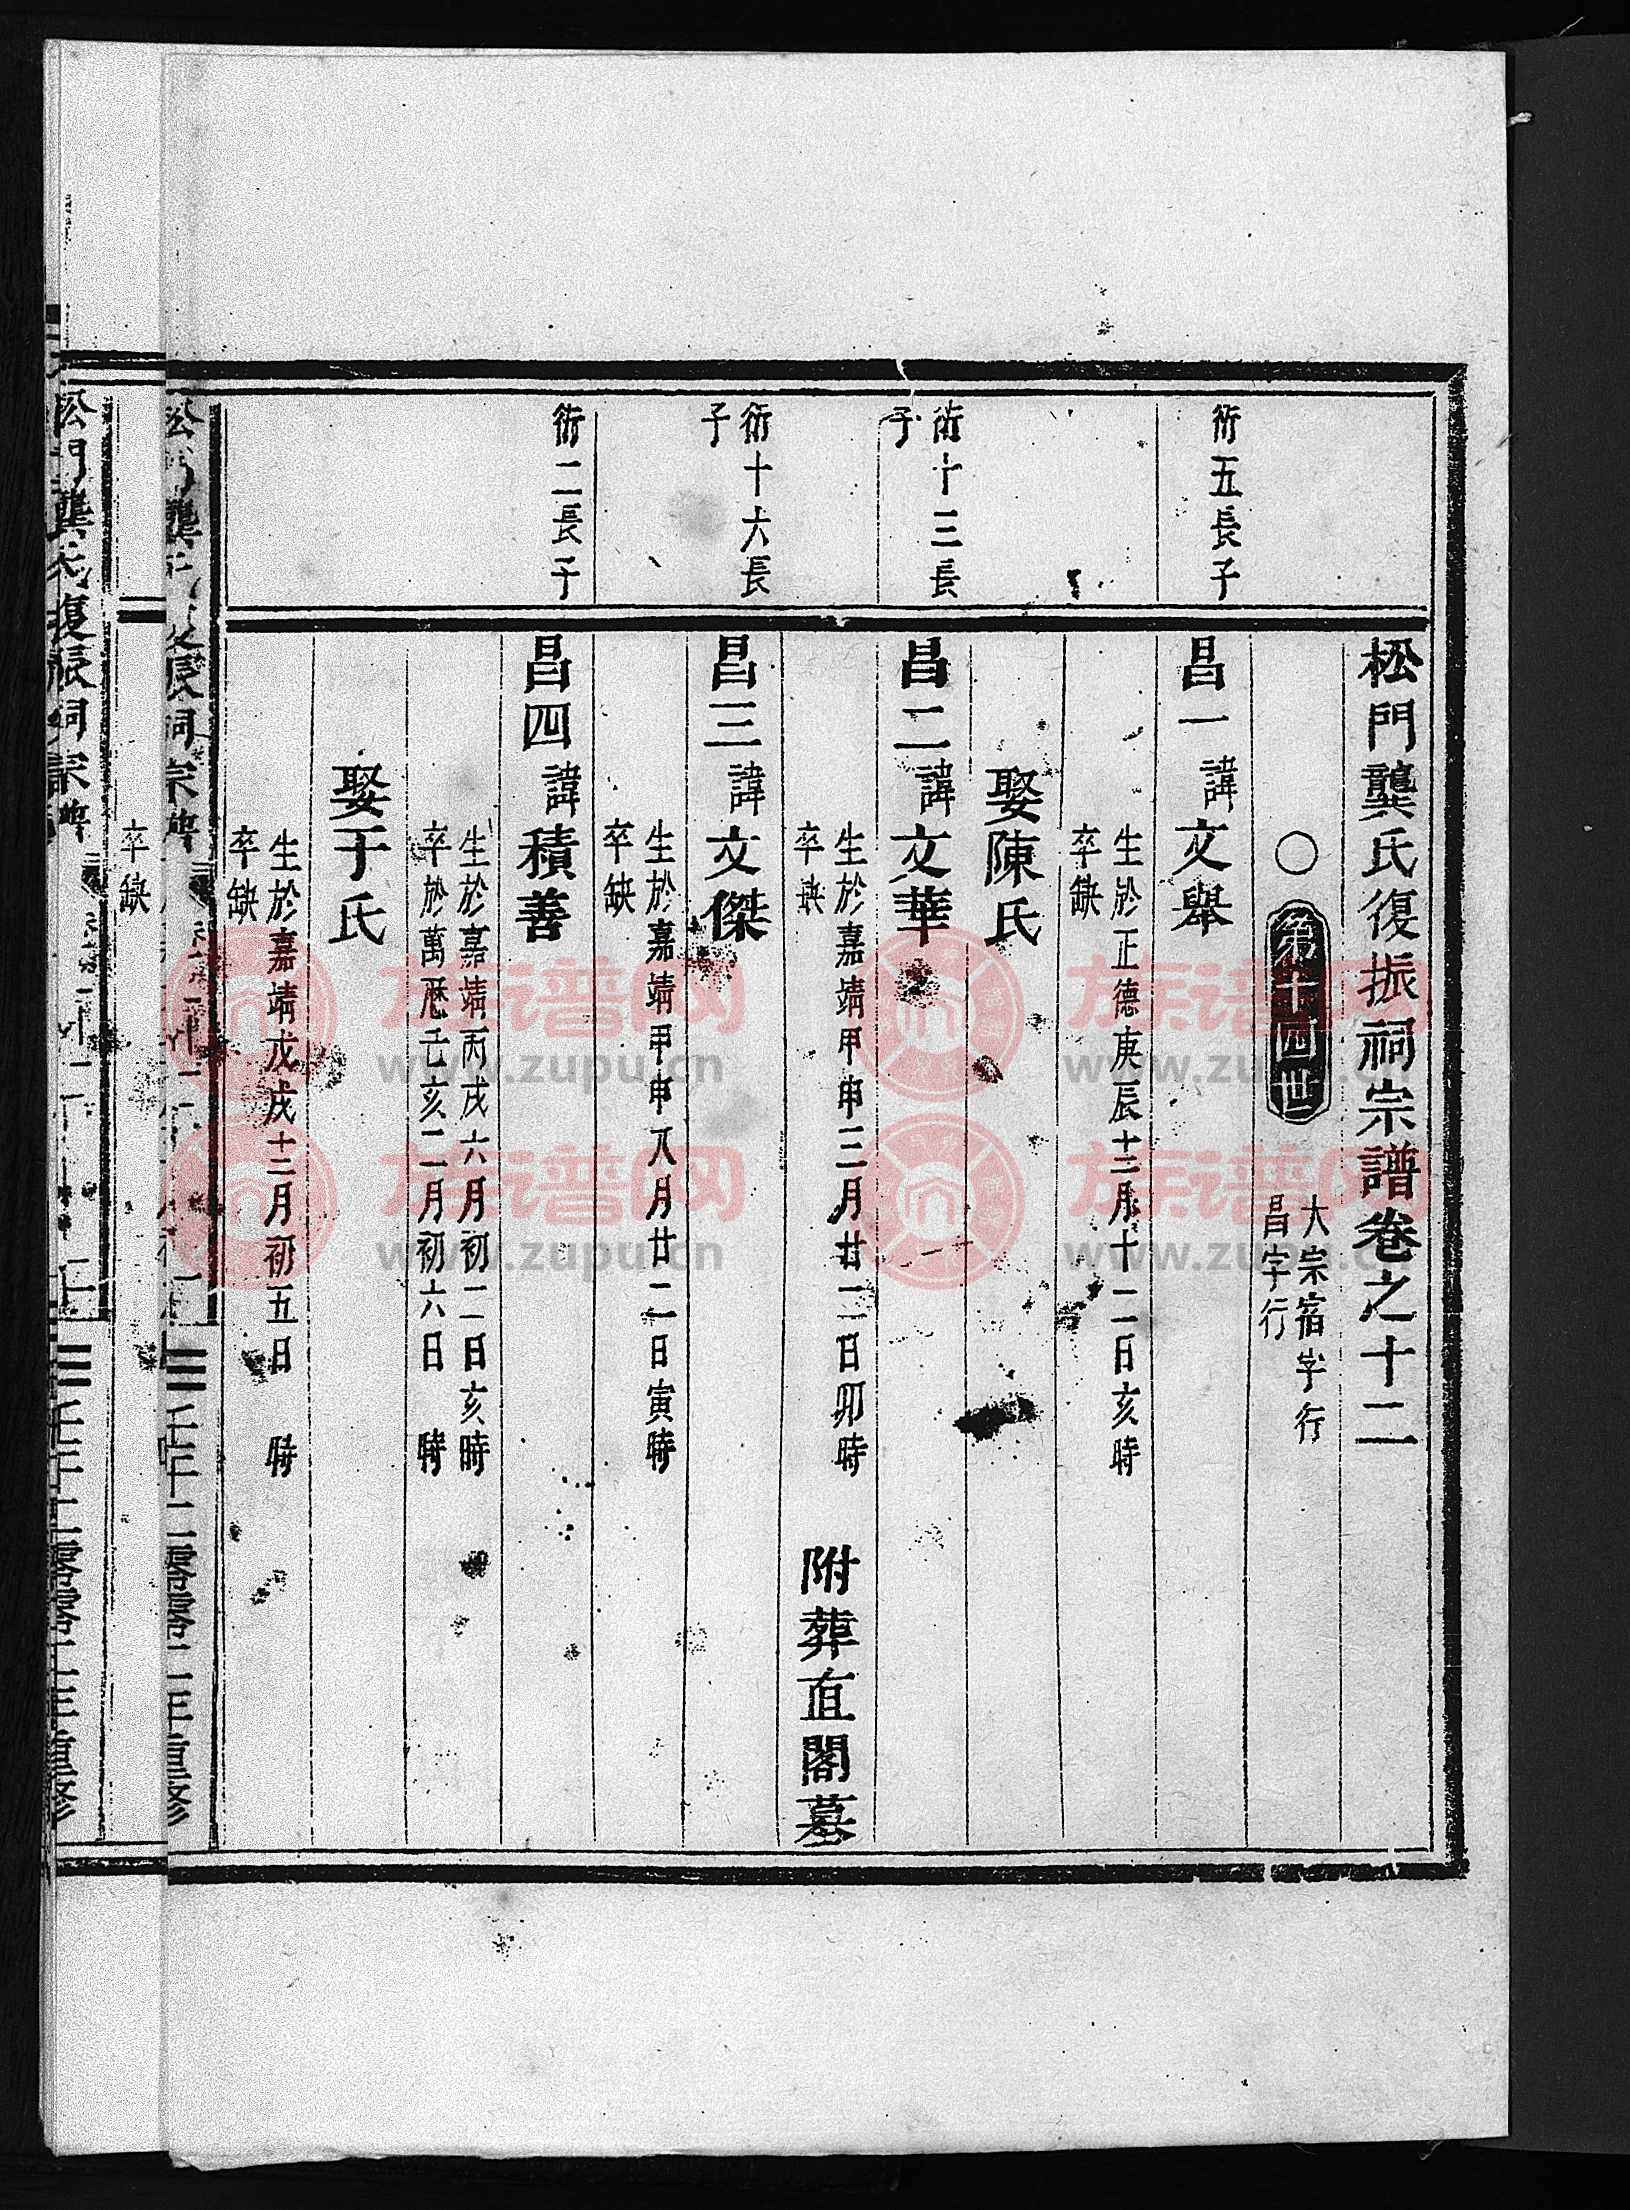 松門龔氏復振祠宗譜卷之十二
○ 第十四世
大宗宿字行
昌字行
衍五長子
昌一諱文舉
生於正德庚辰十二月十二日亥時
卒缺
娶陳氏
衍十三長
子
昌二諱文華
生於嘉靖甲申三月廿二日卯時
卒缺
附葬直閣墓
衍十六長
子
昌三諱文傑
生於嘉靖甲申八月廿二日寅時
卒缺
衍二長子
昌四諱積善
生於嘉靖丙戌六月初二日亥時
卒於萬歷壬亥二月初六日 時
娶于氏
生於嘉靖戊戌十二月初五日 時
卒缺
卒缺
族谱网
www.zupu.cn
族谱网
www.zupu.cn
族谱网
www.zupu.cn
族谱网
www.zupu.cn